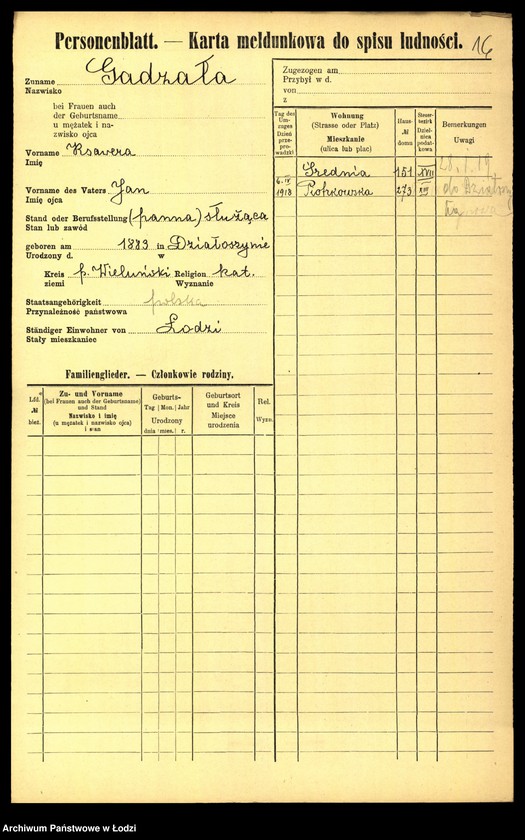 Personenblatt. — Karta meldunkowa do spisu ludności. 16
Zuname Gadzała
Nazwisko
bei Frauen auch
der Geburtsname
u mężatek i na-
zwisko ojca
Vorname Ksawera
Imię
Vorname des Vaters Jan
Imię ojca
Stand oder Berufsstellung (panna) służąca
Stan lub zawód
geboren am 1883 in Działoszynie
Urodzony d. w
Kreis p. Wieluński Religion kat.
ziemi Wyznanie
Staatsangehörigkeit polska
Przynależność państwowa
Ständiger Einwohner von Łodzi
Stały mieszkaniec
Zugezogen am
Przybył w d.
von
z
Tag des Um-
zuges
Dzień
prze-
prowadzki
Wohnung
(Strasse oder Platz)
Mieszkanie
(ulica lub plac)
Haus-
№
domu
Steuer-
bezirk
Dziel-
nica
podat-
kowa
Bemerkungen
Uwagi
Średnia 151 XVII 28. I. 19
6. IV 1918 Piotrkowska 273 XIII do
Familienglieder. — Członkowie rodziny.
Lfd.
№
bież.
Zu- und Vorname
(bei Frauen auch der Geburtsname)
und Stand
Nazwisko i imię
(u mężatek i nazwisko ojca)
i stan
Geburts-
Tag Mon. Jahr
Urodzony
dnia mies. r.
Geburtsort
und Kreis
Miejsce
urodzenia
Rel.
Wyzn.
Archiwum Państwowe w Łodzi